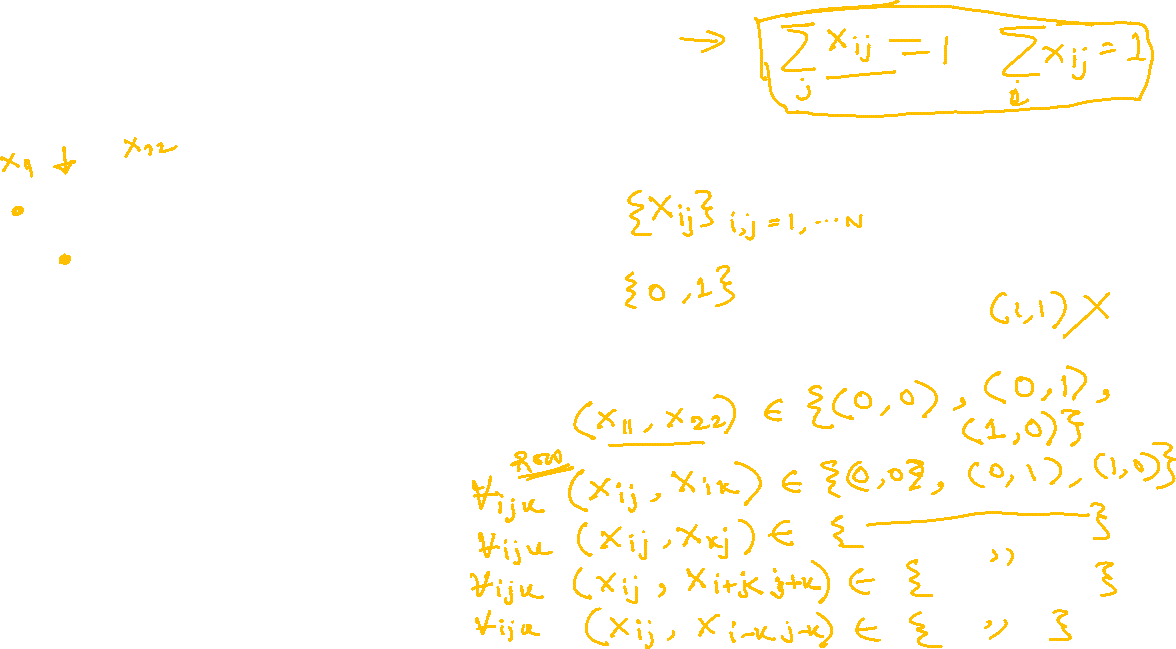 → ∑_j X_ij = 1 ∑_i X_ij = 1
X_22
{X_ij} i,j = 1, ... N
{0,1}
(1,1) X
(X_11, X_22) ∈ {(0,0), (0,1),
(1,0)}
Row
∀_ijk (X_ij, X_ik) ∈ {(0,0), (0,1), (1,0)}
∀_ijk (X_ij, X_kj) ∈ { ——— }
∀_ijk (X_ij, X_i+k j+k) ∈ { " }
∀_ijk (X_ij, X_i-k j-k) ∈ { " }